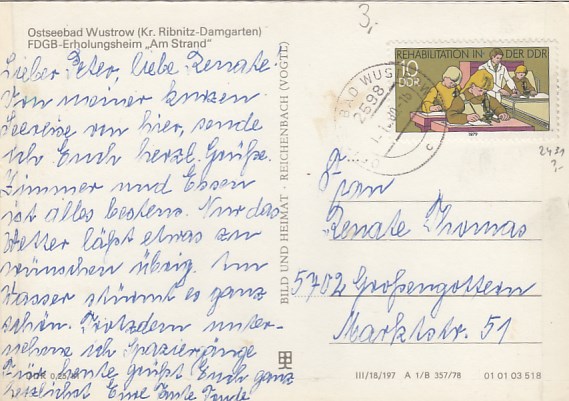 Ostseebad Wustrow (Kr. Ribnitz-Damgarten)
FDGB-Erholungsheim „Am Strand“
Lieber Peter, liebe Renate!
Von meiner kurzen
Seereise von hier, sende
ich Euch herzl. Grüße.
Zimmer und Essen
ist alles bestens. Nur das
Wetter läßt etwas zu
wünschen übrig. Am
Wasser stürmt es ganz
schön. Trotzdem unter-
nehme ich Spaziergänge
Für heute grüßt Euch ganz
herzlichst Eure Tante
0,25
BILD UND HEIMAT · REICHENBACH (VOGTL)
3,-
REHABILITATION IN DER DDR
10
DDR
1979
BAD WUSTROW
2598
c
2431
2,-
Frau
Renate Thomas
5702 Großengottern
Marktstr. 51
III/18/197 A 1/B 357/78 01 01 03 518